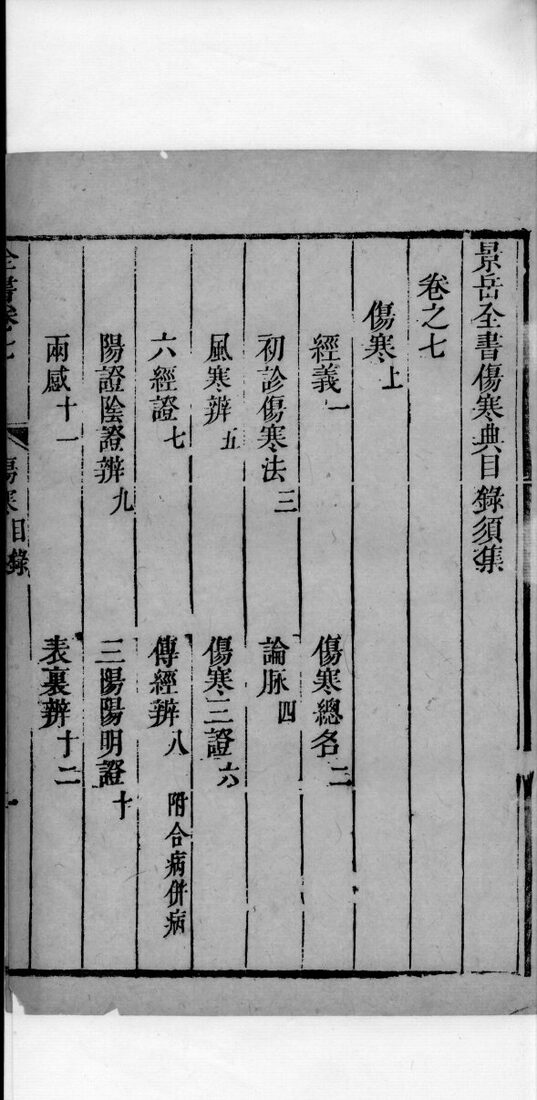 景岳全書傷寒典目錄須集
卷之七
傷寒上
經義一　傷寒總名二
初診傷寒法三　論脉四
風寒辨五　傷寒三證六
六經證七　傳經辨八　附合病併病
陽證陰證辨九　三陽陽明證十
兩感十一　表裏辨十二
全書卷七　傷寒目錄　一